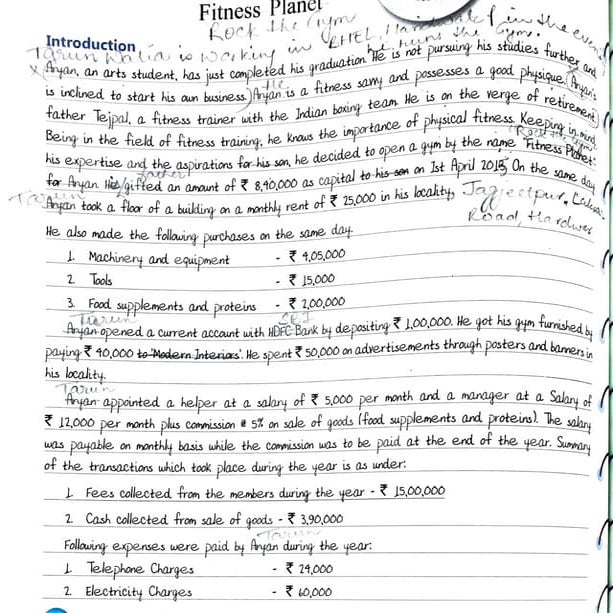 Fitness Planet
Rock the Gym
Introduction
Tarun Walia is working in BHEL, Haridwar & in the evening runs the Gym.
Aryan, an arts student, has just completed his graduation. He is not pursuing his studies further and
is inclined to start his own business. Aryan is a fitness savvy and possesses a good physique. Aryan's
father Tejpal, a fitness trainer with the Indian boxing team. He is on the verge of retirement.
Being in the field of fitness training, he knows the importance of physical fitness. Keeping in mind
Rock the Gym
his expertise and the aspirations for his son, he decided to open a gym by the name 'Fitness Planet'.
father
for Aryan His gifted an amount of ₹ 8,40,000 as capital to his son on 1st April 2015 On the same day
Tarun
Aryan took a floor of a building on a monthly rent of ₹ 25,000 in his locality, Jagjeetpur,
Road, Haridwar
He also made the following purchases on the same day.
1. Machinery and equipment - ₹ 4,05,000
2. Tools - ₹ 15,000
3. Food supplements and proteins - ₹ 2,00,000
Tarun SBI
Aryan opened a current account with HDFC Bank by depositing ₹ 1,00,000. He got his gym furnished by
paying ₹ 40,000 to 'Modern Interiors'. He spent ₹ 50,000 on advertisements through posters and banners in
his locality.
Tarun
Aryan appointed a helper at a salary of ₹ 5,000 per month and a manager at a Salary of
₹ 12,000 per month plus commission @ 5% on sale of goods (food supplements and proteins). The salary
was payable on monthly basis while the commission was to be paid at the end of the year. Summary
of the transactions which took place during the year is as under:
1. Fees collected from the members during the year - ₹ 15,00,000
2. Cash collected from sale of goods - ₹ 3,90,000
Tarun
Following expenses were paid by Aryan during the year:
1. Telephone Charges - ₹ 24,000
2. Electricity Charges - ₹ 60,000